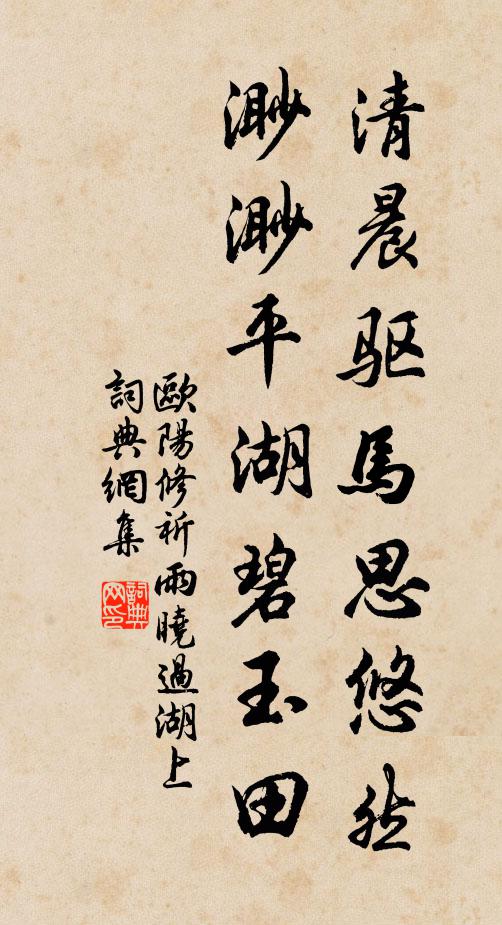 清晨驱馬思悠然
渺渺平湖碧玉田
歐陽修祈雨曉過湖上
詞典網集
詞典网印